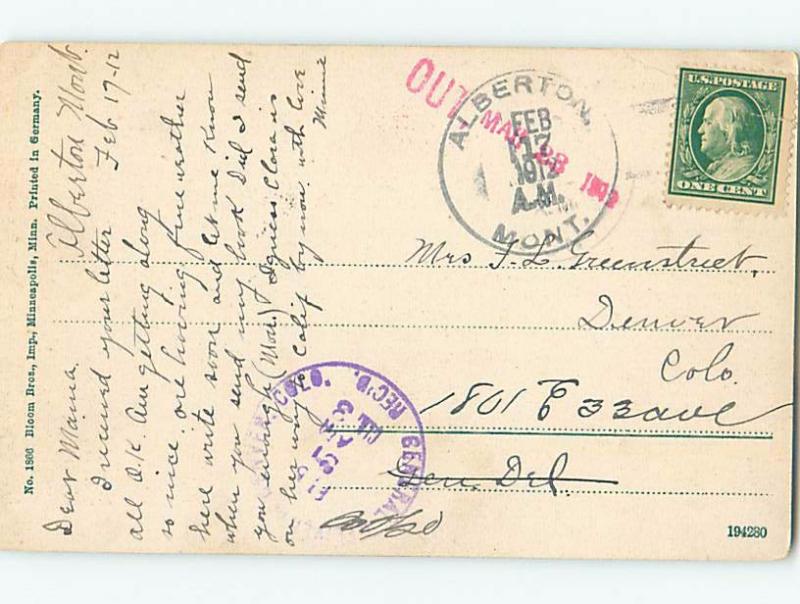 No. 1866 Bloom Bros., Imp., Minneapolis, Minn. Printed in Germany.
Alberton Mont.
Feb 17-12
Dear Mama.
I received your letter
all O.K. Am getting along
so nice are having fine weather
here write soon and let me know
when you send my book Did I send
you enough (Mon.) I guess Clara is
on her way to Calif by now. with love
Minnie
OUT MAR 28
ALBERTON,
FEB
17
1912
A.M.
MONT.
U.S. POSTAGE
ONE CENT
Mrs F. L. Greenstreet,
Denver
Colo.
1801 E 33 ave
Gen. Del
GENERAL
REC'D.
194280